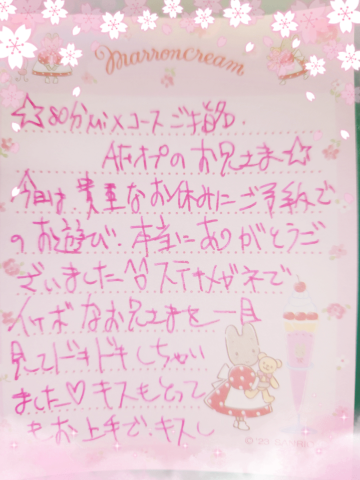 marroncream
☆80分MIXコースご指名.
AFオプのお兄さま☆
今回は貴重なお休みにご予約で
のお遊び.本当にありがとうご
ざいました^^ステキメガネで
イケボなお兄さまを一目
見てドキドキしちゃい
ました♡キスもとって
もお上手で.キスし